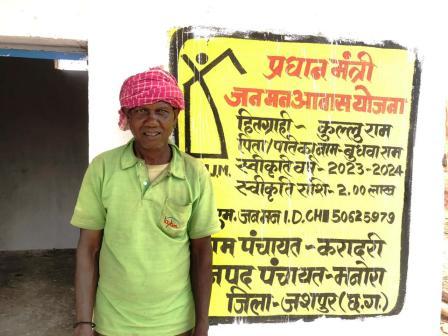 प्रधान मंत्री
जन मन आवास योजना
हितग्राही - कुल्लु राम
पिता/पति का नाम - बुधवा राम
स्वीकृति वर्ष - 2023-2024
स्वीकृति राशि - 2.00 लाख
एम. जन मन I.D. CHI 50625979
पंचायत - करादरी
पंचायत - मनोरा
जिला - जशपुर (छ.ग.)